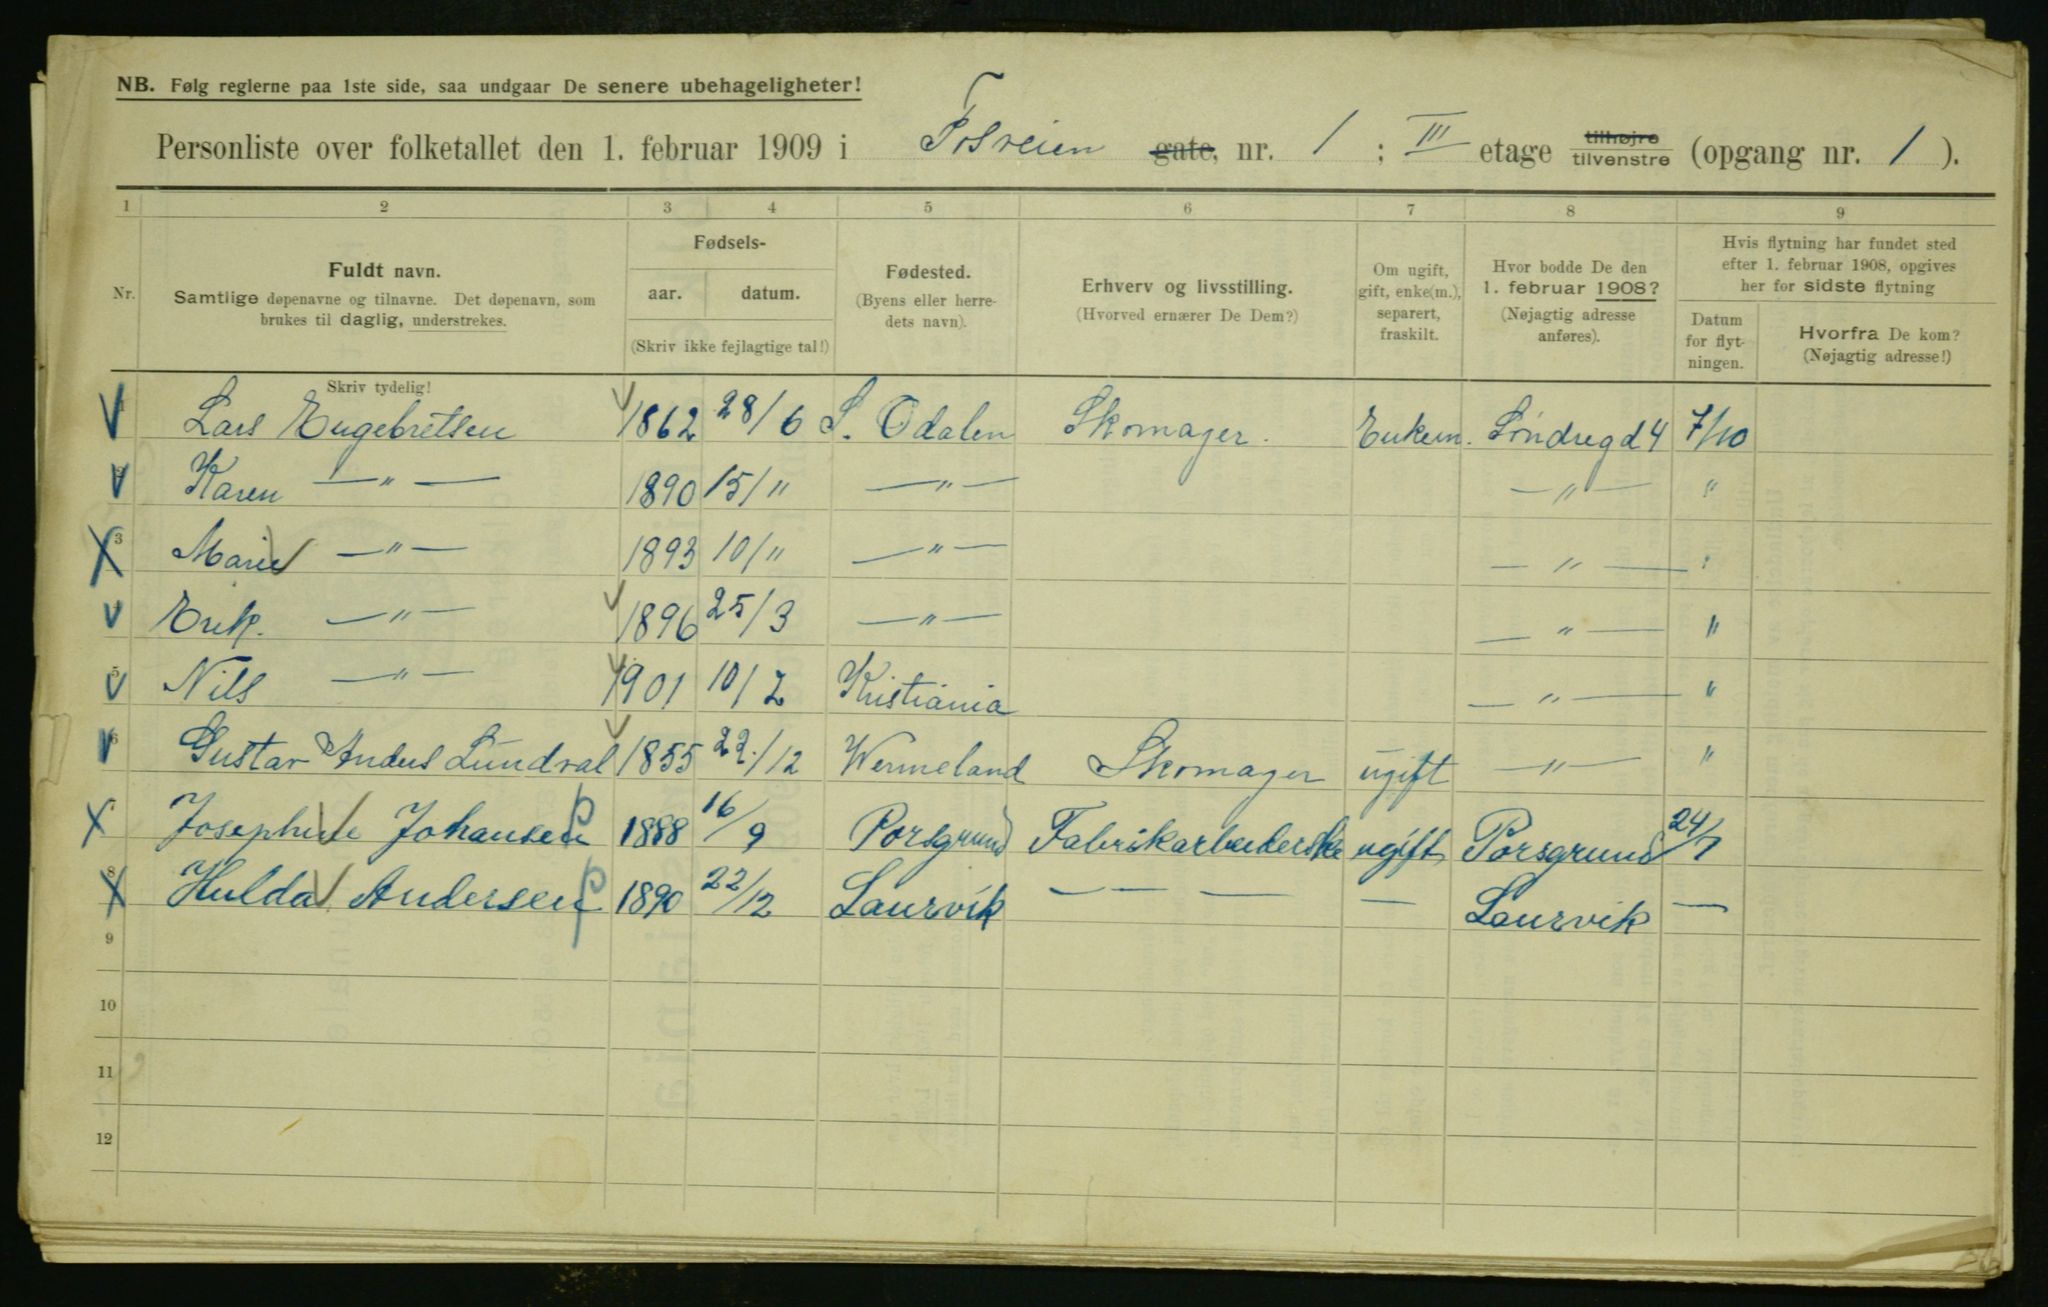 NB. Følg reglerne paa 1ste side, saa undgaar De senere ubehageligheter!
Personliste over folketallet den 1. februar 1909 i Tosveien gate, nr. 1 ; III etage tilhøjre tilvenstre (opgang nr. 1 ).
1 2 3 4 5 6 7 8 9
Nr.
Fuldt navn.
Samtlige døpenavne og tilnavne. Det døpenavn, som
brukes til daglig, understrekes.
Fødsels-
aar. datum.
(Skriv ikke fejlagtige tal!)
Fødested.
(Byens eller herre-
dets navn).
Erhverv og livsstilling.
(Hvorved ernærer De Dem?)
Om ugift,
gift, enke(m.),
separert,
fraskilt.
Hvor bodde De den
1. februar 1908?
(Nøjagtig adresse
anføres).
Hvis flytning har fundet sted
efter 1. februar 1908, opgives
her for sidste flytning
Datum
for flyt-
ningen.
Hvorfra De kom?
(Nøjagtig adresse!)
Skriv tydelig!
Lars Engebretsen 1862 28/6 S. Odalen Skomager. Enkem. Söndregd 4 7/10
Karen —"— 1890 15/" —"— —"— "
3 Marie —"— 1893 10/" —"— —"— "
Erik. —"— 1896 25/3 —"— —"— "
5 Nils —"— 1901 10/2 Kristiania —"— "
6 Gustav Anders Lundval 1855 22./12 Wermeland Skomager ugift —"— "
7 Josephine Johansen 1888 16/9 Porsgrund Fabrikarbeiderske ugift Porsgrund 24/7
8 Hulda Andersen 1890 22/12 Laurvik — — — — Laurvik —
9
10
11
12